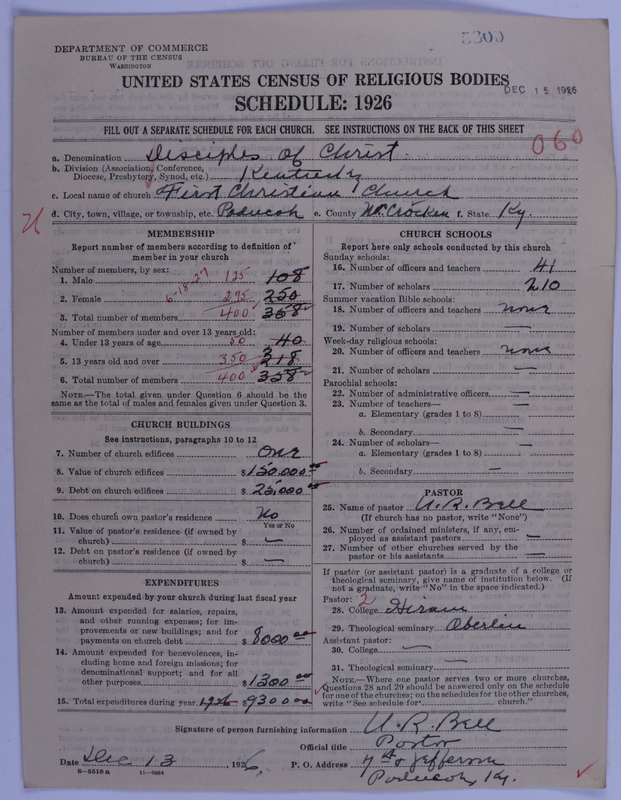 5300
DEPARTMENT OF COMMERCE
BUREAU OF THE CENSUS
WASHINGTON
UNITED STATES CENSUS OF RELIGIOUS BODIES
DEC 15 1926
SCHEDULE: 1926
FILL OUT A SEPARATE SCHEDULE FOR EACH CHURCH. SEE INSTRUCTIONS ON THE BACK OF THIS SHEET
060
a. Denomination Disciples of Christ
b. Division (Association, Conference, Diocese, Presbytery, Synod, etc.) Kentucky
c. Local name of church First Christian Church
d. City, town, village, or township, etc. Paducah e. County McCracken f. State Ky.
MEMBERSHIP
Report number of members according to definition of
member in your church
Number of members, by sex:
1. Male 125 108
6-18-27
2. Female 275 250
3. Total number of members 400 358
Number of members under and over 13 years old:
4. Under 13 years of age 50 40
5. 13 years old and over 350 318
6. Total number of members 400 358
NOTE.—The total given under Question 6 should be the
same as the total of males and females given under Question 3.
CHURCH BUILDINGS
See instructions, paragraphs 10 to 12
7. Number of church edifices One
8. Value of church edifices $ 150,000.00
9. Debt on church edifices $ 25,000
10. Does church own pastor's residence No
Yes or No
11. Value of pastor's residence (if owned by
church) $ —
12. Debt on pastor's residence (if owned by
church) $ —
EXPENDITURES
Amount expended by your church during last fiscal year
13. Amount expended for salaries, repairs,
and other running expenses; for im-
provements or new buildings; and for
payments on church debt $ 8000 00
14. Amount expended for benevolences, in-
cluding home and foreign missions; for
denominational support; and for all
other purposes $ 1300 00
15. Total expenditures during year 1926 $ 9300 00
CHURCH SCHOOLS
Report here only schools conducted by this church
Sunday schools:
16. Number of officers and teachers 41
17. Number of scholars 210
Summer vacation Bible schools:
18. Number of officers and teachers none
19. Number of scholars —
Week-day religious schools:
20. Number of officers and teachers none
21. Number of scholars —
Parochial schools:
22. Number of administrative officers —
23. Number of teachers—
a. Elementary (grades 1 to 8) —
b. Secondary —
24. Number of scholars—
a. Elementary (grades 1 to 8) —
b. Secondary —
PASTOR
25. Name of pastor U. R. Bell
(If church has no pastor, write "None")
26. Number of ordained ministers, if any, em-
ployed as assistant pastors —
27. Number of other churches served by the
pastor or his assistants —
If pastor (or assistant pastor) is a graduate of a college or
theological seminary, give name of institution below. (If
not a graduate, write "No" in the space indicated.)
Pastor: 2
28. College Hiram
29. Theological seminary Oberlin
Assistant pastor:
30. College —
31. Theological seminary —
NOTE.—Where one pastor serves two or more churches,
Questions 28 and 29 should be answered only on the schedule
for one of the churches; on the schedules for the other churches,
write "See schedule for church."
Signature of person furnishing information U. R. Bell
Official title Pastor
Date Dec 13, 1926 P. O. Address 7th & Jefferson
Paducah, Ky.
8—5518 a 11—9054